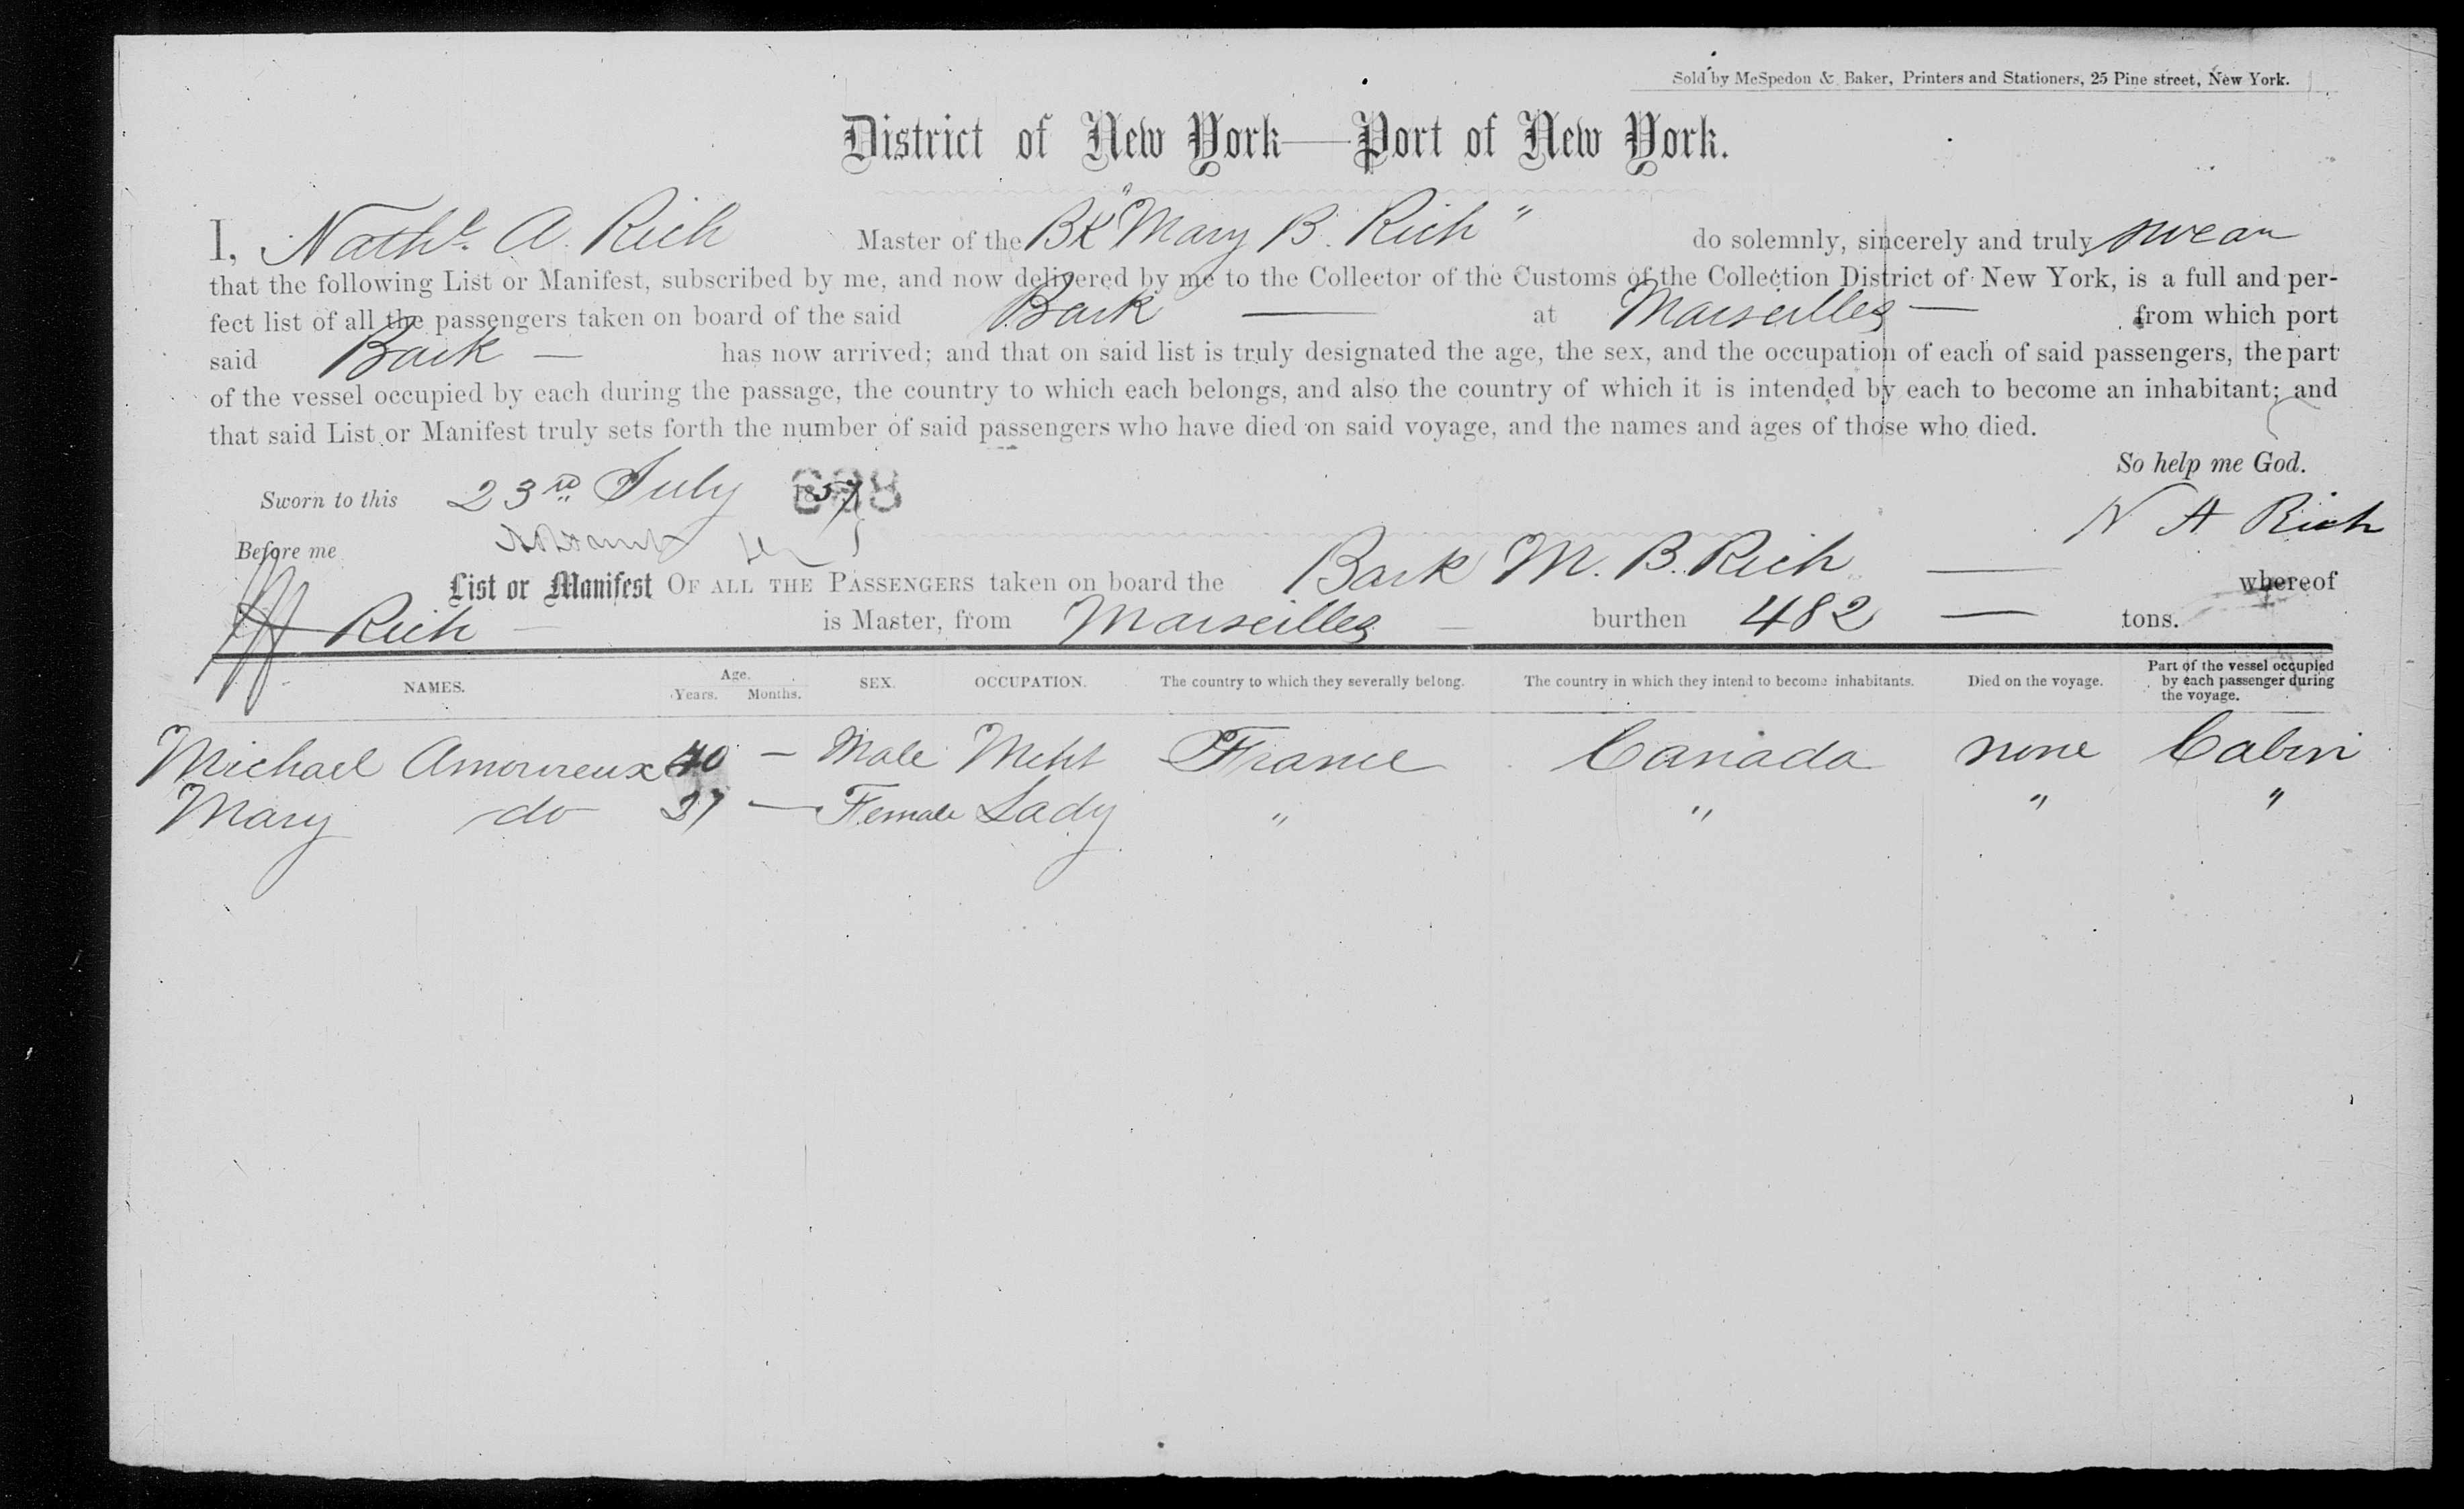 Sold by McSpedon & Baker, Printers and Stationers, 25 Pine street, New York.
District of New York—Port of New York.
I, Nathl. A. Rich Master of the BK "Mary B. Rich" do solemnly, sincerely and truly swear
that the following List or Manifest, subscribed by me, and now delivered by me to the Collector of the Customs of the Collection District of New York, is a full and per-
fect list of all the passengers taken on board of the said Bark — at Marseilles — from which port
said Bark — has now arrived; and that on said list is truly designated the age, the sex, and the occupation of each of said passengers, the part
of the vessel occupied by each during the passage, the country to which each belongs, and also the country of which it is intended by each to become an inhabitant; and
that said List or Manifest truly sets forth the number of said passengers who have died on said voyage, and the names and ages of those who died.
So help me God.
Sworn to this 23rd July 1857
N A Rich
Before me
List or Manifest OF ALL THE PASSENGERS taken on board the Bark M. B. Rich — whereof
Rich — is Master, from Marseilles — burthen 482 — tons.
NAMES. Age. Years. Months. SEX. OCCUPATION. The country to which they severally belong. The country in which they intend to become inhabitants. Died on the voyage. Part of the vessel occupied by each passenger during the voyage.
Michael Amoureux 40 — Male Mcht France Canada none Cabin
Mary do 37 — Female Lady " " " "